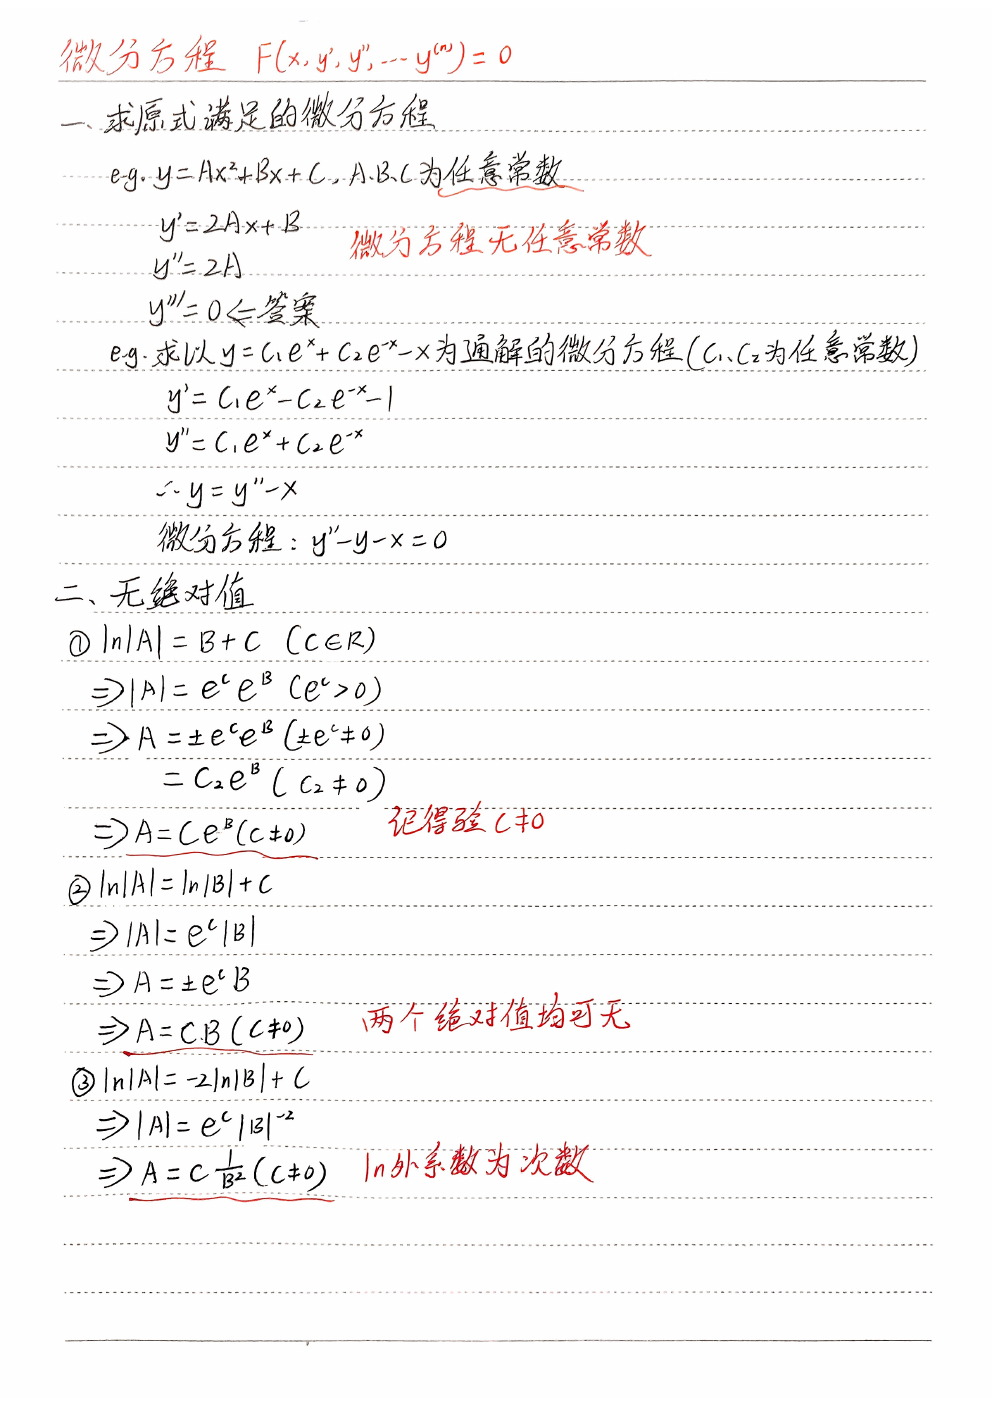 微分方程 F(x, y', y'', … y⁽ⁿ⁾) = 0
一、求原式满足的微分方程
e.g. y = Ax²+Bx+C, A.B.C为任意常数
y' = 2Ax+B
微分方程无任意常数
y'' = 2A
y''' = 0 ⇐ 答案
e.g. 求以 y = C₁eˣ + C₂e⁻ˣ - x 为通解的微分方程 (C₁、C₂为任意常数)
y' = C₁eˣ - C₂e⁻ˣ - 1
y'' = C₁eˣ + C₂e⁻ˣ
∴ y = y'' - x
微分方程: y'' - y - x = 0
二、无绝对值
① ln|A| = B + C (C∈R)
⇒ |A| = eᶜ eᴮ (eᶜ > 0)
⇒ A = ±eᶜeᴮ (±eᶜ ≠ 0)
= C₂eᴮ ( C₂ ≠ 0)
⇒ A = Ceᴮ (C ≠ 0) 记得验 C ≠ 0
② ln|A| = ln|B| + C
⇒ |A| = eᶜ|B|
⇒ A = ±eᶜB
⇒ A = C.B (C ≠ 0) 两个绝对值均可无
③ ln|A| = -2ln|B| + C
⇒ |A| = eᶜ|B|⁻²
⇒ A = C 1/B² (C ≠ 0) ln外系数为次数